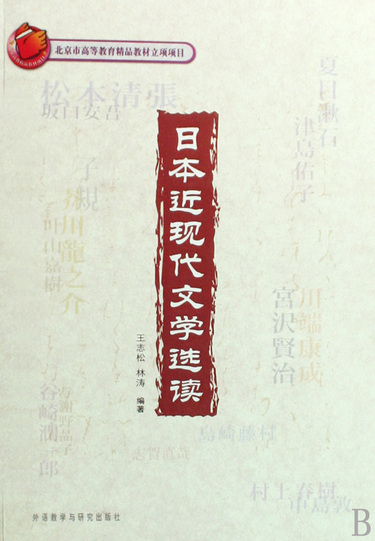 北京市高等教育精品教材立项项目
松本清張
坂口安吾
夏目漱石
津島佑子
子規
芥川龍之介
葉山嘉樹
日本近现代文学选读
王志松 林涛 编著
川端康成
宮沢賢治
谷崎潤一郎
島崎藤村
村上春樹
中島敦
外语教学与研究出版社
B